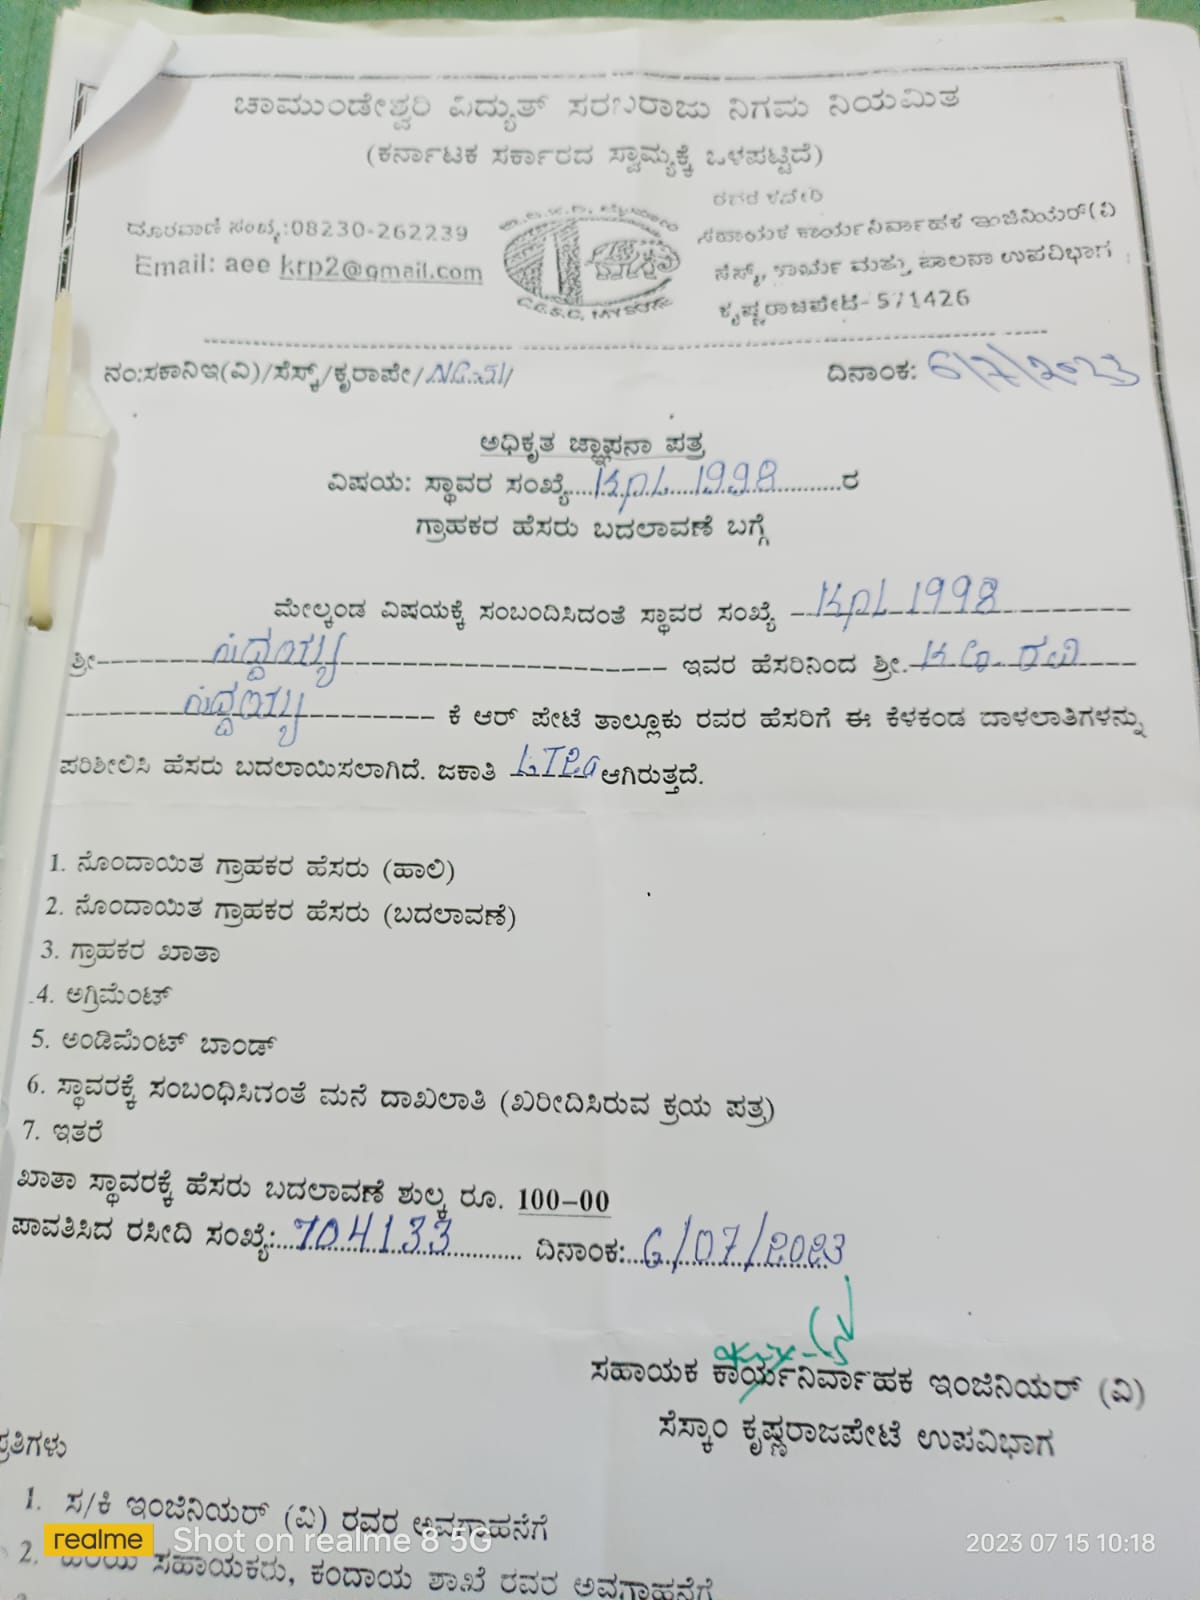 ಚಾಮುಂಡೇಶ್ವರಿ ವಿದ್ಯುತ್ ಸರಬರಾಜು ನಿಗಮ ನಿಯಮಿತ
(ಕರ್ನಾಟಕ ಸರ್ಕಾರದ ಸ್ವಾಮ್ಯಕ್ಕೆ ಒಳಪಟ್ಟಿದೆ)
ರವರ ಕಚೇರಿ
ದೂರವಾಣಿ ಸಂಖ್ಯ:08230-262239
ಸಹಾಯಕ ಕಾರ್ಯನಿರ್ವಾಹಕ ಇಂಜಿನಿಯರ್(ವಿ
Email: aee krp2@gmail.com
ಸೆಸ್ಕ್, ಕಾರ್ಯ ಮತ್ತು ಪಾಲನಾ ಉಪವಿಭಾಗ
C.E.S.C, MYSORE
ಕೃಷ್ಣರಾಜಪೇಟೆ- 571426
ನಂ:ಸಕಾನಿಇ(ವಿ)/ಸೆಸ್ಕ್/ಕೃರಾಪೇ/NC-51/
ದಿನಾಂಕ: 6/7/2023
ಅಧಿಕೃತ ಜ್ಞಾಪನಾ ಪತ್ರ
ವಿಷಯ: ಸ್ಥಾವರ ಸಂಖ್ಯೆ....KPL 1998...........ರ
ಗ್ರಾಹಕರ ಹೆಸರು ಬದಲಾವಣೆ ಬಗ್ಗೆ
ಮೇಲ್ಕಂಡ ವಿಷಯಕ್ಕೆ ಸಂಬಂದಿಸಿದಂತೆ ಸ್ಥಾವರ ಸಂಖ್ಯೆ KPL 1998
ಶ್ರೀ ಸಿದ್ದಯ್ಯ ಇವರ ಹೆಸರಿನಿಂದ ಶ್ರೀ. ರವಿ
ಸಿದ್ದಯ್ಯ ಕೆ ಆರ್ ಪೇಟೆ ತಾಲ್ಲೂಕು ರವರ ಹೆಸರಿಗೆ ಈ ಕೆಳಕಂಡ ದಾಳಲಾತಿಗಳನ್ನು
ಪರಿಶೀಲಿಸಿ ಹೆಸರು ಬದಲಾಯಿಸಲಾಗಿದೆ. ಜಕಾತಿ LT2a ಆಗಿರುತ್ತದೆ.
1. ನೊಂದಾಯಿತ ಗ್ರಾಹಕರ ಹೆಸರು (ಹಾಲಿ)
2. ನೊಂದಾಯಿತ ಗ್ರಾಹಕರ ಹೆಸರು (ಬದಲಾವಣೆ)
3. ಗ್ರಾಹಕರ ಖಾತಾ
4. ಅಗ್ರಿಮೆಂಟ್
5. ಅಂಡಿಮೆಂಟ್ ಬಾಂಡ್
6. ಸ್ಥಾವರಕ್ಕೆ ಸಂಬಂಧಿಸಿದಂತೆ ಮನೆ ದಾಖಲಾತಿ (ಖರೀದಿಸಿರುವ ಕ್ರಯ ಪತ್ರ)
7. ಇತರೆ
ಖಾತಾ ಸ್ಥಾವರಕ್ಕೆ ಹೆಸರು ಬದಲಾವಣೆ ಶುಲ್ಕ ರೂ. 100-00
ಪಾವತಿಸಿದ ರಸೀದಿ ಸಂಖ್ಯೆ:..704133.......... ದಿನಾಂಕ:..6/07/2023
ಸಹಾಯಕ ಕಾರ್ಯನಿರ್ವಾಹಕ ಇಂಜಿನಿಯರ್ (ವಿ)
ಸೆಸ್ಕಾಂ ಕೃಷ್ಣರಾಜಪೇಟೆ ಉಪವಿಭಾಗ
ಪ್ರತಿಗಳು
1. ಸ/ಕಿ ಇಂಜಿನಿಯರ್ (ವಿ) ರವರ ಅವಗಾಹನೆಗೆ
realme Shot on realme 8 5G
2023 07 15 10:18
2. ಹಿರಿಯ ಸಹಾಯಕರು, ಕಂದಾಯ ಶಾಖೆ ರವರ ಅವಗಾಹನೆಗೆ